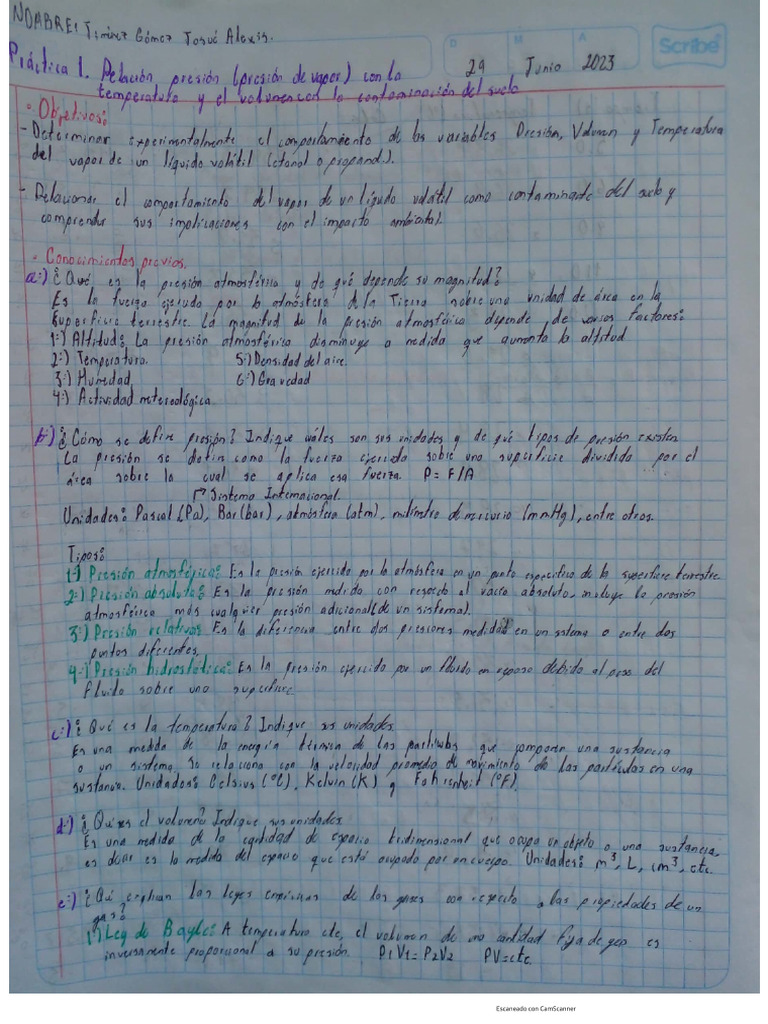 NOMBRE: Jiménez Gómez Josué Alexis.
D M A Scribe
29 Junio 2023
Práctica 1. Relación presión (presión de vapor) con la
temperatura y el volumen con la contaminación del suelo
• Objetivos:
- Determinar experimentalmente el comportamiento de las variables Presión, Volumen y Temperatura
del vapor de un líquido volátil (etanol o propanol).
- Relacionar el comportamiento del vapor de un líquido volátil como contaminante del suelo y
comprender sus implicaciones con el impacto ambiental.
• Conocimientos previos.
a:) ¿Qué es la presión atmosférica y de qué depende su magnitud?
Es la fuerza ejercida por la atmósfera de la Tierra sobre una unidad de área en la
superficie terrestre. La magnitud de la presión atmosférica depende de varios factores:
1:) Altitud: La presión atmosférica disminuye a medida que aumenta la altitud
2:) Temperatura. 5:) Densidad del aire.
3:) Humedad 6:) Gravedad
4:) Actividad metereológica
b:) ¿Cómo se define presión? Indique cuáles son sus unidades y de qué tipos de presión existen
La presión se define como la fuerza ejercida sobre una superficie dividida por el
área sobre la cual se aplica esa fuerza. P= F/A
Sistema Internacional
Unidades: Pascal (Pa), Bar (bar), atmósfera (atm), milímetro de mercurio (mmHg), entre otros.
Tipos:
1:) Presión atmosférica: Es la presión ejercida por la atmósfera en un punto específico de la superficie terrestre
2:) Presión absoluta: Es la presión medida con respecto al vacío absoluto, incluye la presión
atmosférica más cualquier presión adicional (de un sistema).
3:) Presión relativa: Es la diferencia entre dos presiones medidad en un sistema o entre dos
puntos diferentes.
4:) Presión hidrostática: Es la presión ejercida por un fluido en reposo debido al peso del
fluido sobre una superficie
c:) ¿Qué es la temperatura? Indique sus unidades
Es una medida de la energía térmica de las partículas que componen una sustancia
o un sistema. Se relaciona con la velocidad promedio de movimiento de las partículas en una
sustancia. Unidades: Celsius (°C), Kelvin (K) y Fahrenheit (°F).
d:) ¿Qué es el volumen? Indique sus unidades
Es una medida de la cantidad de espacio tridimensional que ocupa un objeto o una sustancia,
es decir es la medida del espacio que está ocupado por un cuerpo. Unidades: m³, L, cm³, etc.
e:) ¿Qué explican las leyes empíricas de los gases con respecto a las propiedades de un
gas?
1:) Ley de Bayle: A temperatura cte, el volumen de una cantidad fija de gas es
inversamente proporcional a su presión. P1V1 = P2V2 PV=cte.
Escaneado con CamScanner